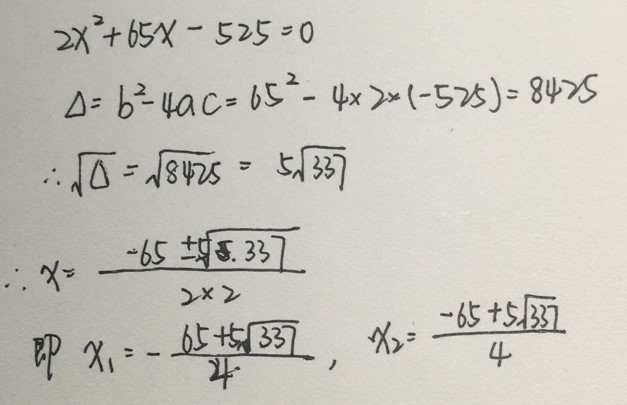 2x²+65x-525=0
Δ=b²-4ac=65²-4×2×(-525)=8425
∴√Δ=√8425=5√337
∴x=(-65±5√337)/(2×2)
即 x₁=-(65+5√337)/4, x₂=(-65+5√337)/4